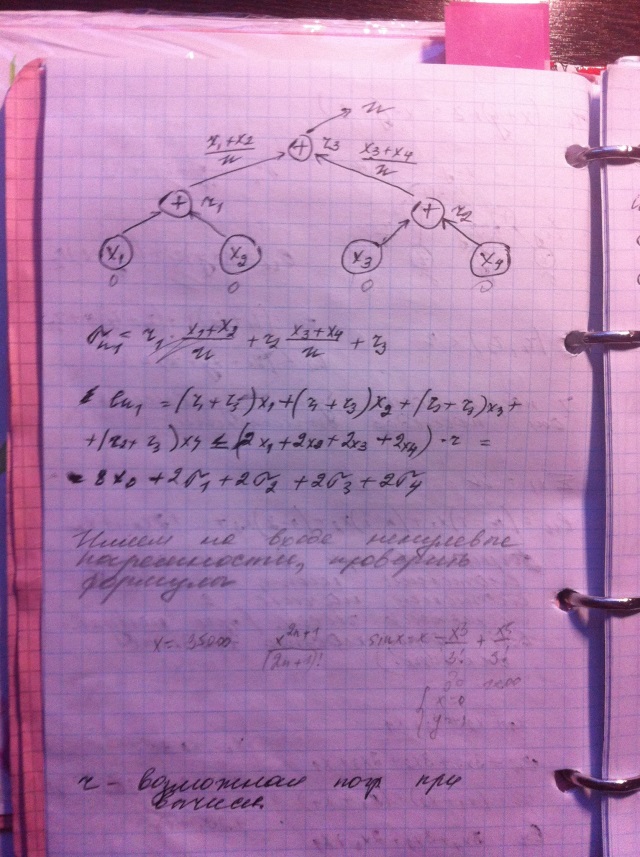 u
x₁+x₂/u + r₃ x₃+x₄/u
+ r₁ + r₂
x₁ x₂ x₃ x₄
0 0 0 0
= r₁ · x₁+x₂/u + r₂ x₃+x₄/u + r₃
= (r₁+r₃)x₁+(r₁+r₃)x₂+(r₂+r₃)x₃+
+(r₂+r₃)x₄ ≤ (2x₁+2x₂+2x₃+2x₄)·r =
+2σ₁+2σ₂+2σ₃+2σ₄
Имеем на входе ненулевые
погрешности, проверить
формулы
x = 35000 x²ⁿ⁺¹/(2n+1)! sinx=x-x³/3!+x⁵/
x=0
r - возможная погр при
вычисл